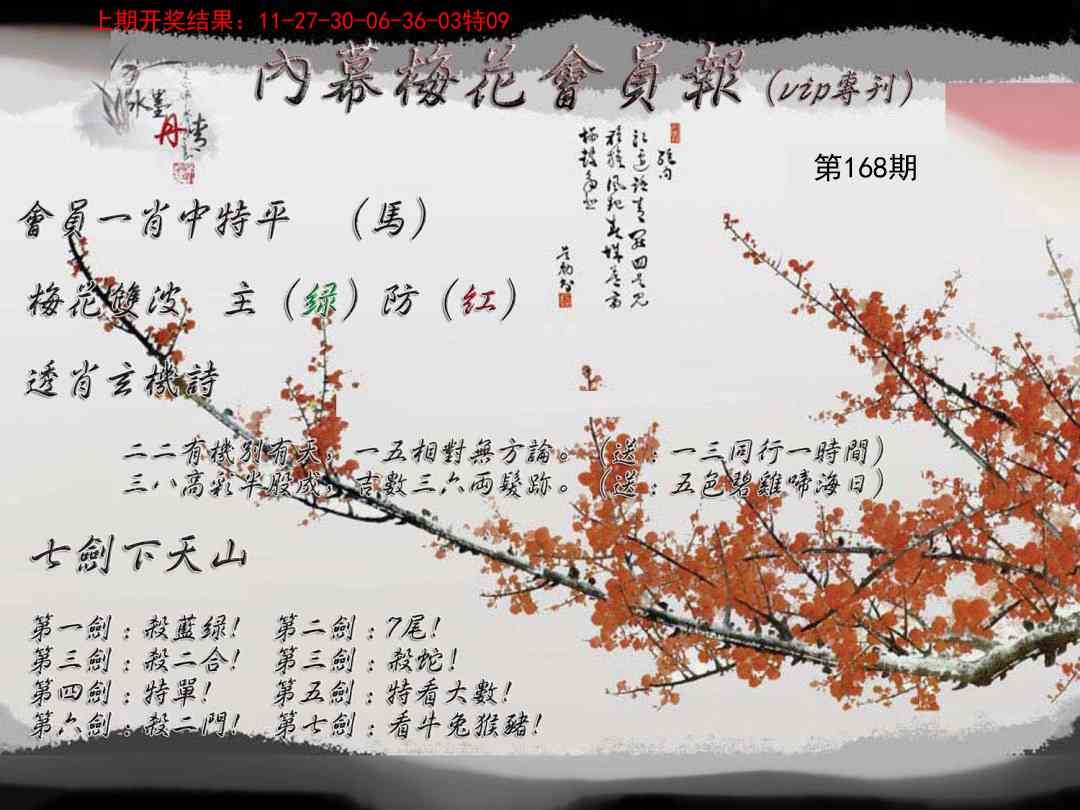 上期开奖结果：11-27-30-06-36-03特09
內幕梅花會員報（vip專刊）
水墨
丹青
第168期
會員一肖中特平　（馬）
梅花雙波　主（绿）防（红）
透肖玄機詩
二二有機別有天，一五相對無方論。（送：一三同行一時間）
三八高彩半股成，吉數三六兩髮跡。（送：五色碧雞啼海日）
七劍下天山
第一劍：殺藍绿！　第二劍：7尾！
第三劍：殺二合！　第三劍：殺蛇！
第四劍：特單！　第五劍：特看大數！
第六劍：殺二門！　第七劍：看牛兔猴豬！